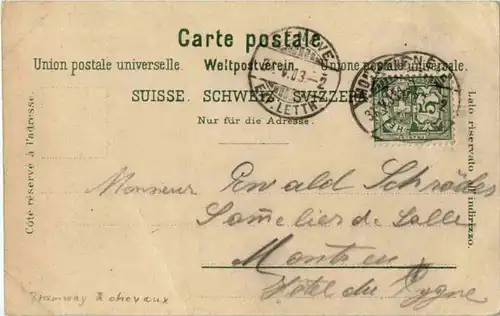 Carte postale.
Union postale universelle. Weltpostverein. Unione postale universale.
SUISSE. SCHWEIZ. SVIZZERA.
Nur für die Adresse.
Côté réservé à l'adresse.
Lato riservato all'indirizzo.
GENÈVE
V.03
EXP. LETTR.
5
Monsieur Oswald Schröder
Sommelier de Salle
Montreux
Hôtel du Cygne
Tramway à chevaux